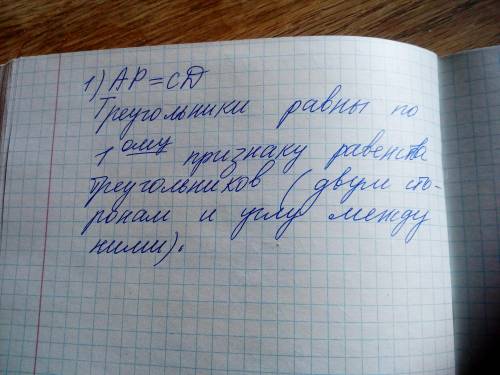 1) AP = CD
Треугольники равны по
1 ому признаку равенства
треугольников (двум сто-
ронам и углу между
ними).